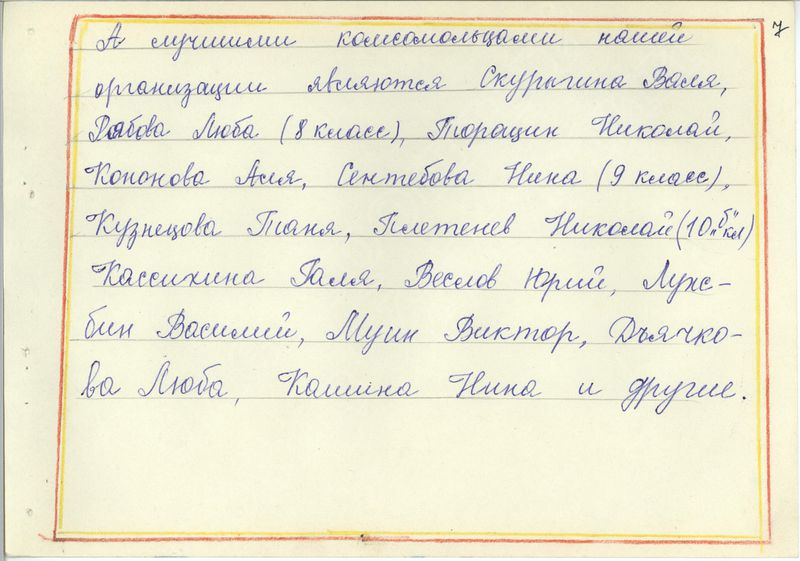 7
А лучшими комсомольцами нашей
организации являются Скурыгина Валя,
Рябова Люба (8 класс), Торацин Николай,
Кононова Аля, Сентебова Нина (9 класс),
Кузнецова Таня, Плетенев Николай (10 „б" кл)
Кассихина Галя, Веслов Юрий, Лужс-
бин Василий, Муин Виктор, Дьячко-
ва Люба, Кашина Нина и другие.